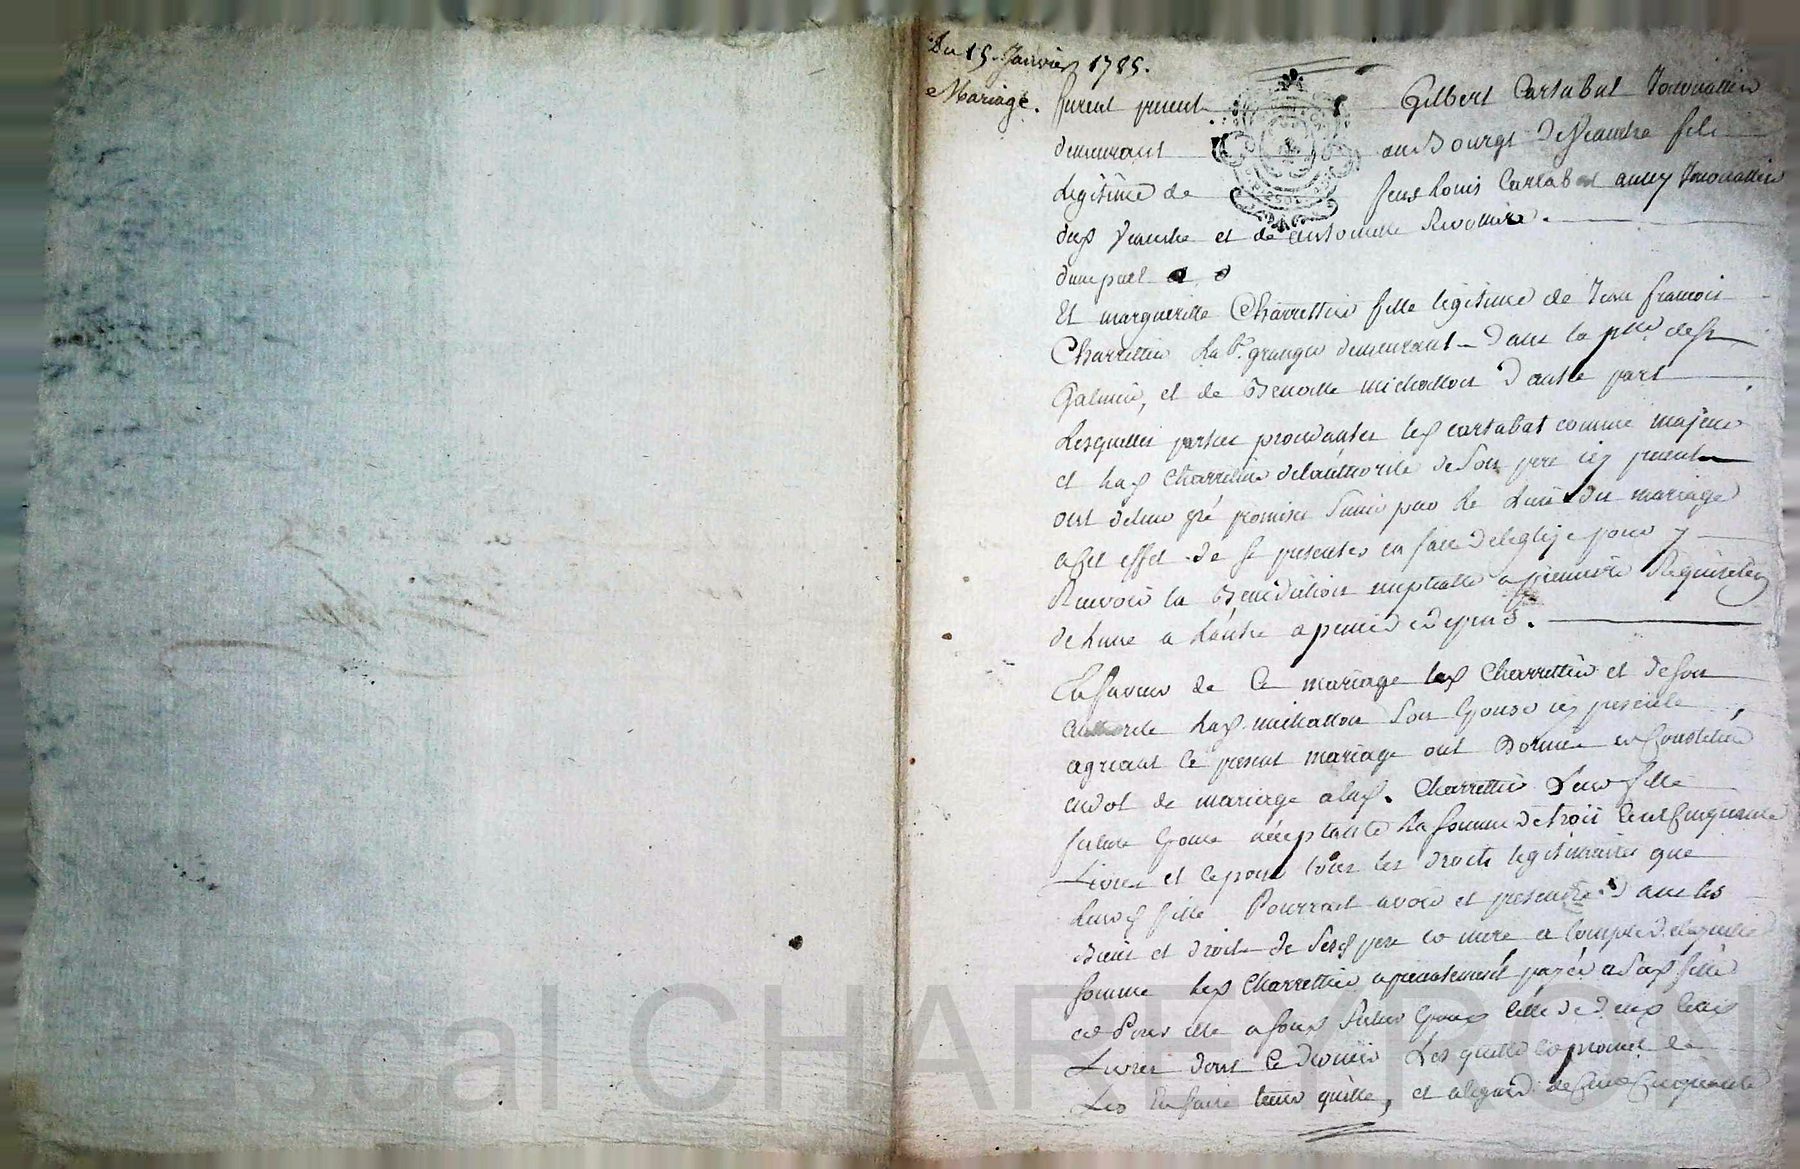 Du 15. Janvier 1785.
Mariage. furent present Gilbert Cartabat
demeurant au Bourgt de Veauche fils
Legitime de feux Louis Cartabat
dud Veauche et de antoinette
d'une part
Et margueritte Charrettier fille legitime de Jean francois
Charrettier Lab.r granger demeurant dans la de St
Galmier, et de Benoitte michallon d'autre part
Lesquelles parties procedantes led cartabat comme majeur
et lad Charrettier de l'authorité de son pere icy present
ont de leur gré promis s'unir par le Lien du mariage
a Cet effet de se presenter en face de leglize pour y
Recevoir la Benediction nuptialle a premiere Requisition
de Lune a Lautre a peine
En faveur de Ce mariage led Charrettier et de son
authorité Lad michallon son Epouse icy presente
agreant le present mariage ont Donné et Constitué
en dot de mariage a lad. Charrettier Leur fille
future Epouse acceptante La somme de trois Cent Cinquante
Livres et ce pour tous les droits legitimaires que
Leurd fille Pourroit avoir et pretendre dans les
Biens et droits de Sesd pere et mere a Compte de laquelle
somme led Charrettier a presentement payée a Sad fille
et Pour elle a Sond futur Epoux Celle de deux Cents
Livres dont Ce dernier Les quitte et promet
Les En faire tenir quitte, et a l'egard des Cent Cinquante
scal CHAREYRON